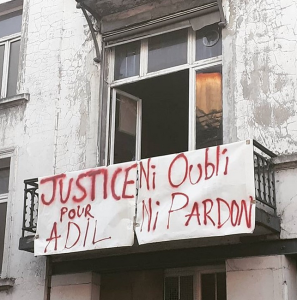 JUSTICE
POUR
ADIL
Ni OUBLi
Ni PARDON